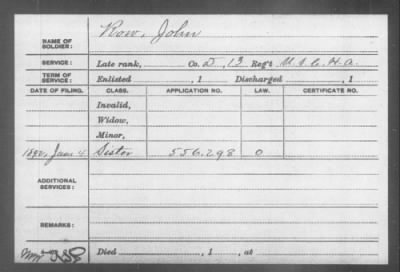 NAME OF SOLDIER: Row, John
SERVICE: Late rank, Co. D, 13 Reg't U.S.C.H.A.
TERM OF SERVICE: Enlisted , 1 Discharged , 1
DATE OF FILING. CLASS. APPLICATION NO. LAW. CERTIFICATE NO.
Invalid,
Widow,
Minor,
1892, June 4. Sister 556.298 O
ADDITIONAL SERVICES:
REMARKS:
Died , 1 , at